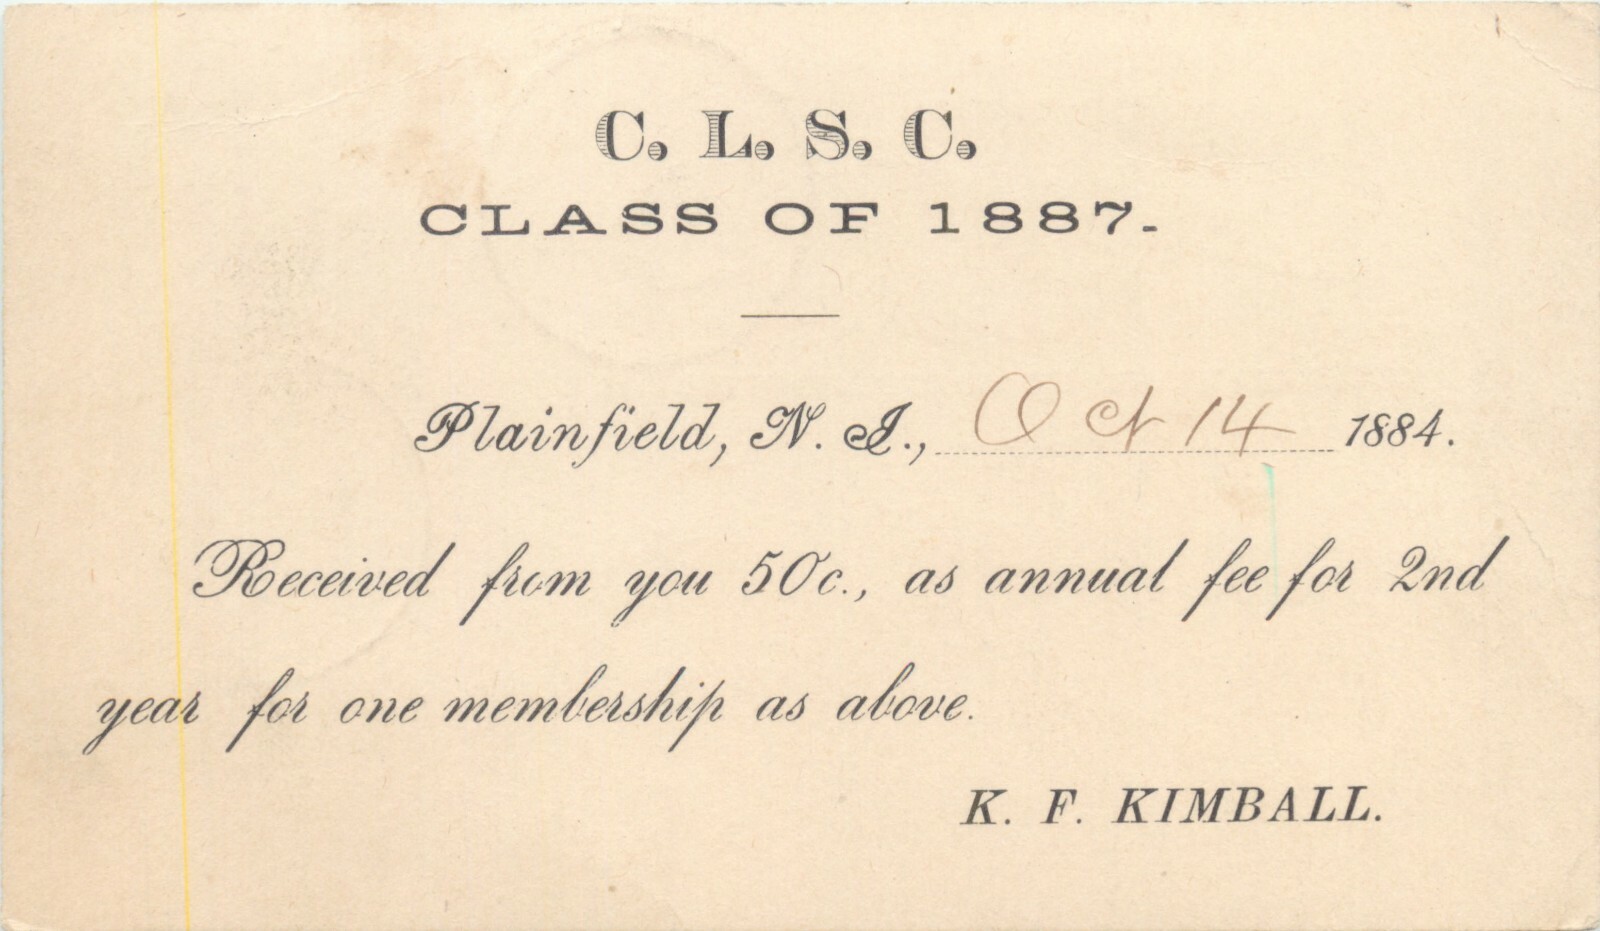 C. L. S. C.
CLASS OF 1887.
Plainfield, N. J., Oct 14 1884.
Received from you 50c., as annual fee for 2nd
year for one membership as above.
K. F. KIMBALL.